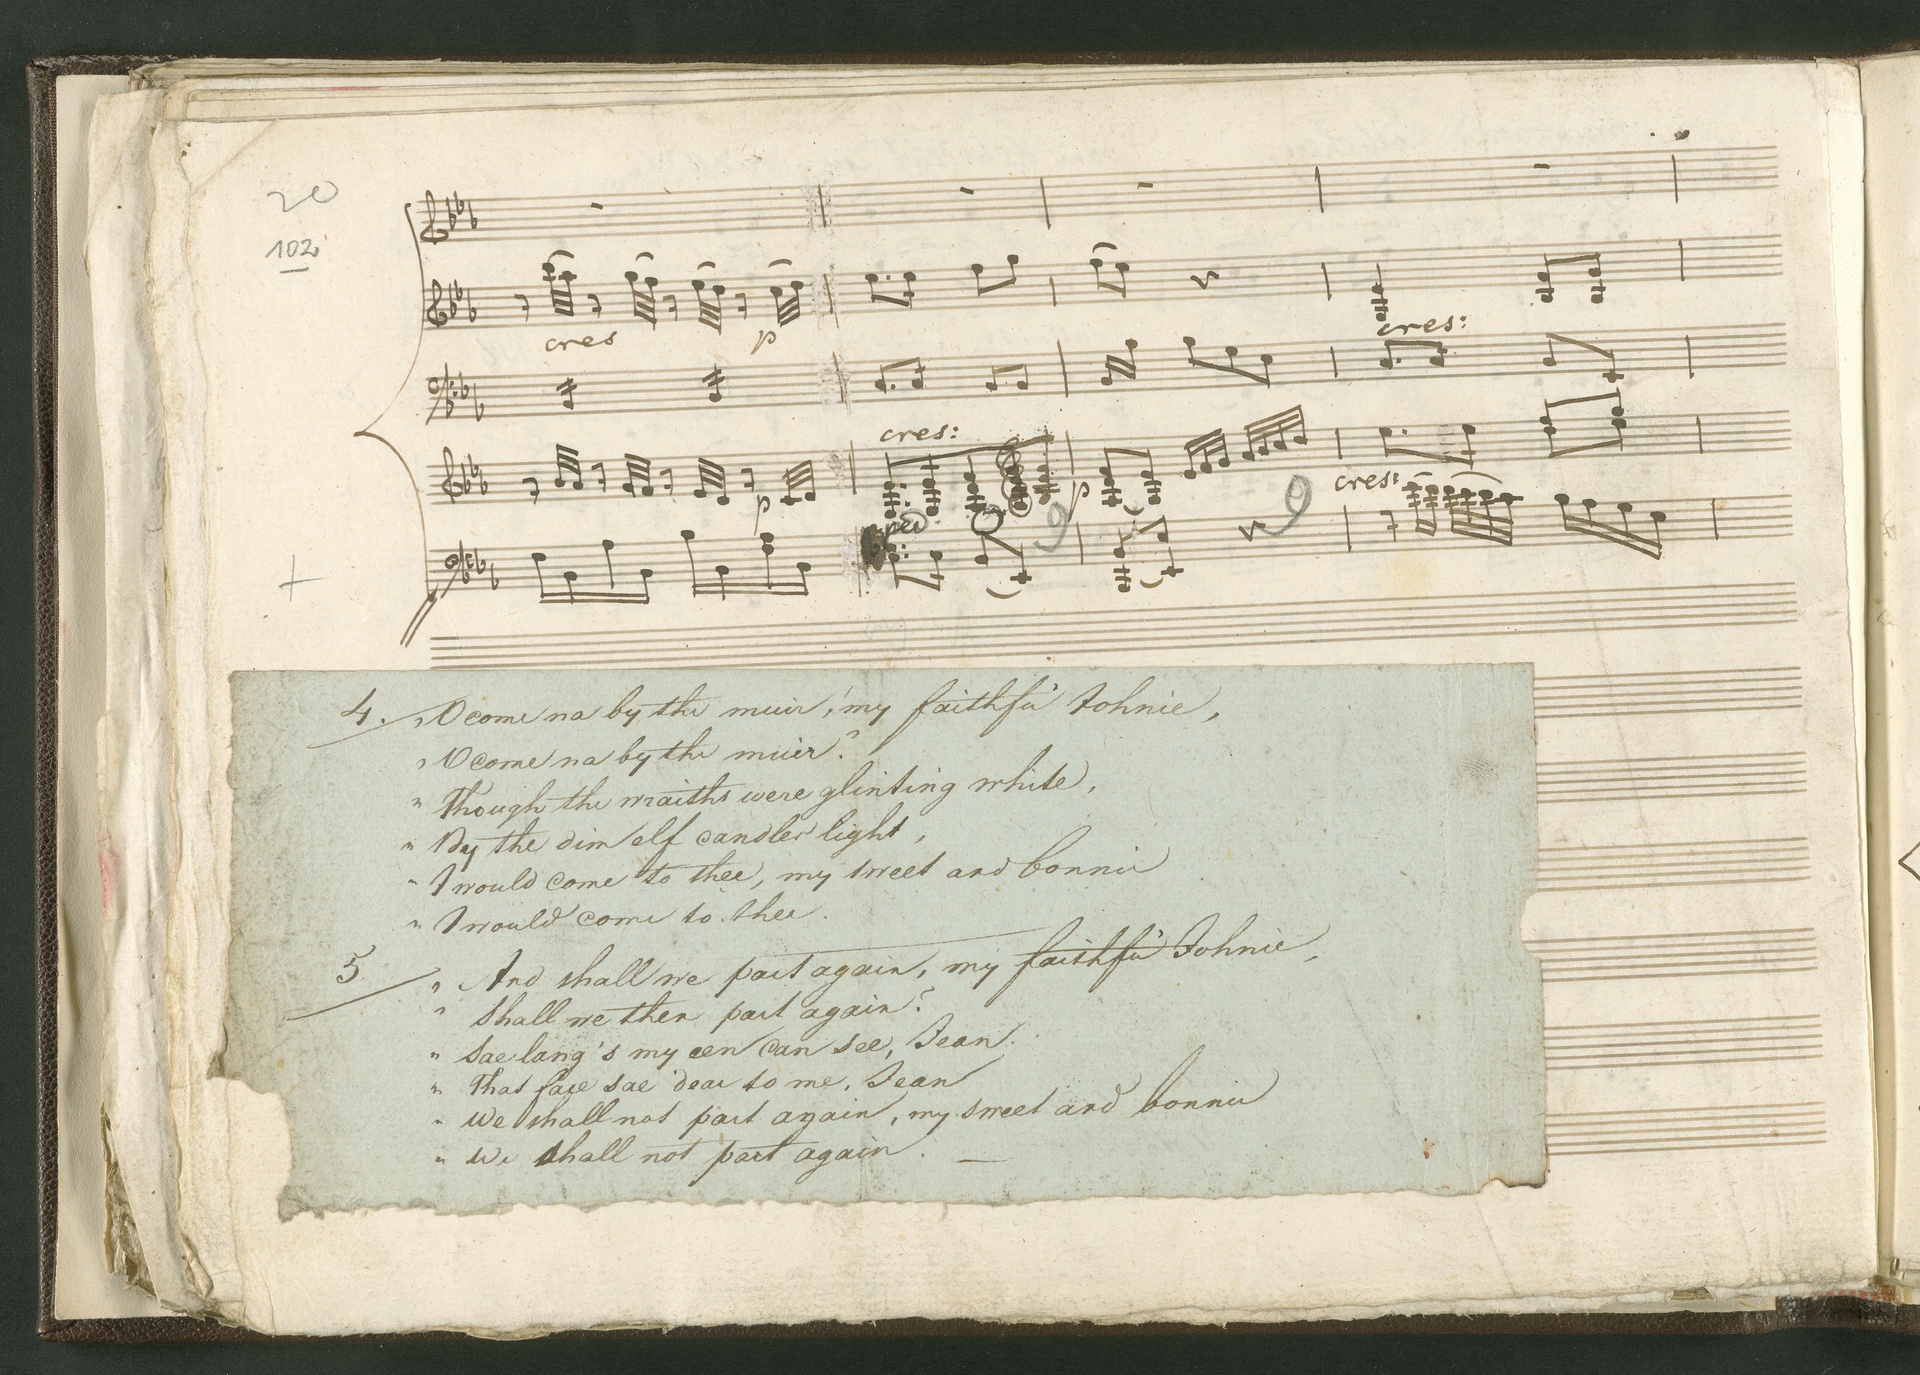 20
102
cres
p
cres:
cres:
p
ped
p
cres:
4. "O come na by the muir, my faithfu' Johnie,
"O come na by the muir?
" Though the wraiths were glinting white,
" By the dim elf candles light,
" I would come to thee, my sweet and bonnie
" I would come to thee.
5 " And shall we part again, my faithfu' Johnie,
" Shall we then part again?
" Sae lang's my een can see, Jean.
" That face sae dear to me, Jean
" We shall not part again, my sweet and bonnie
" We shall not part again. —